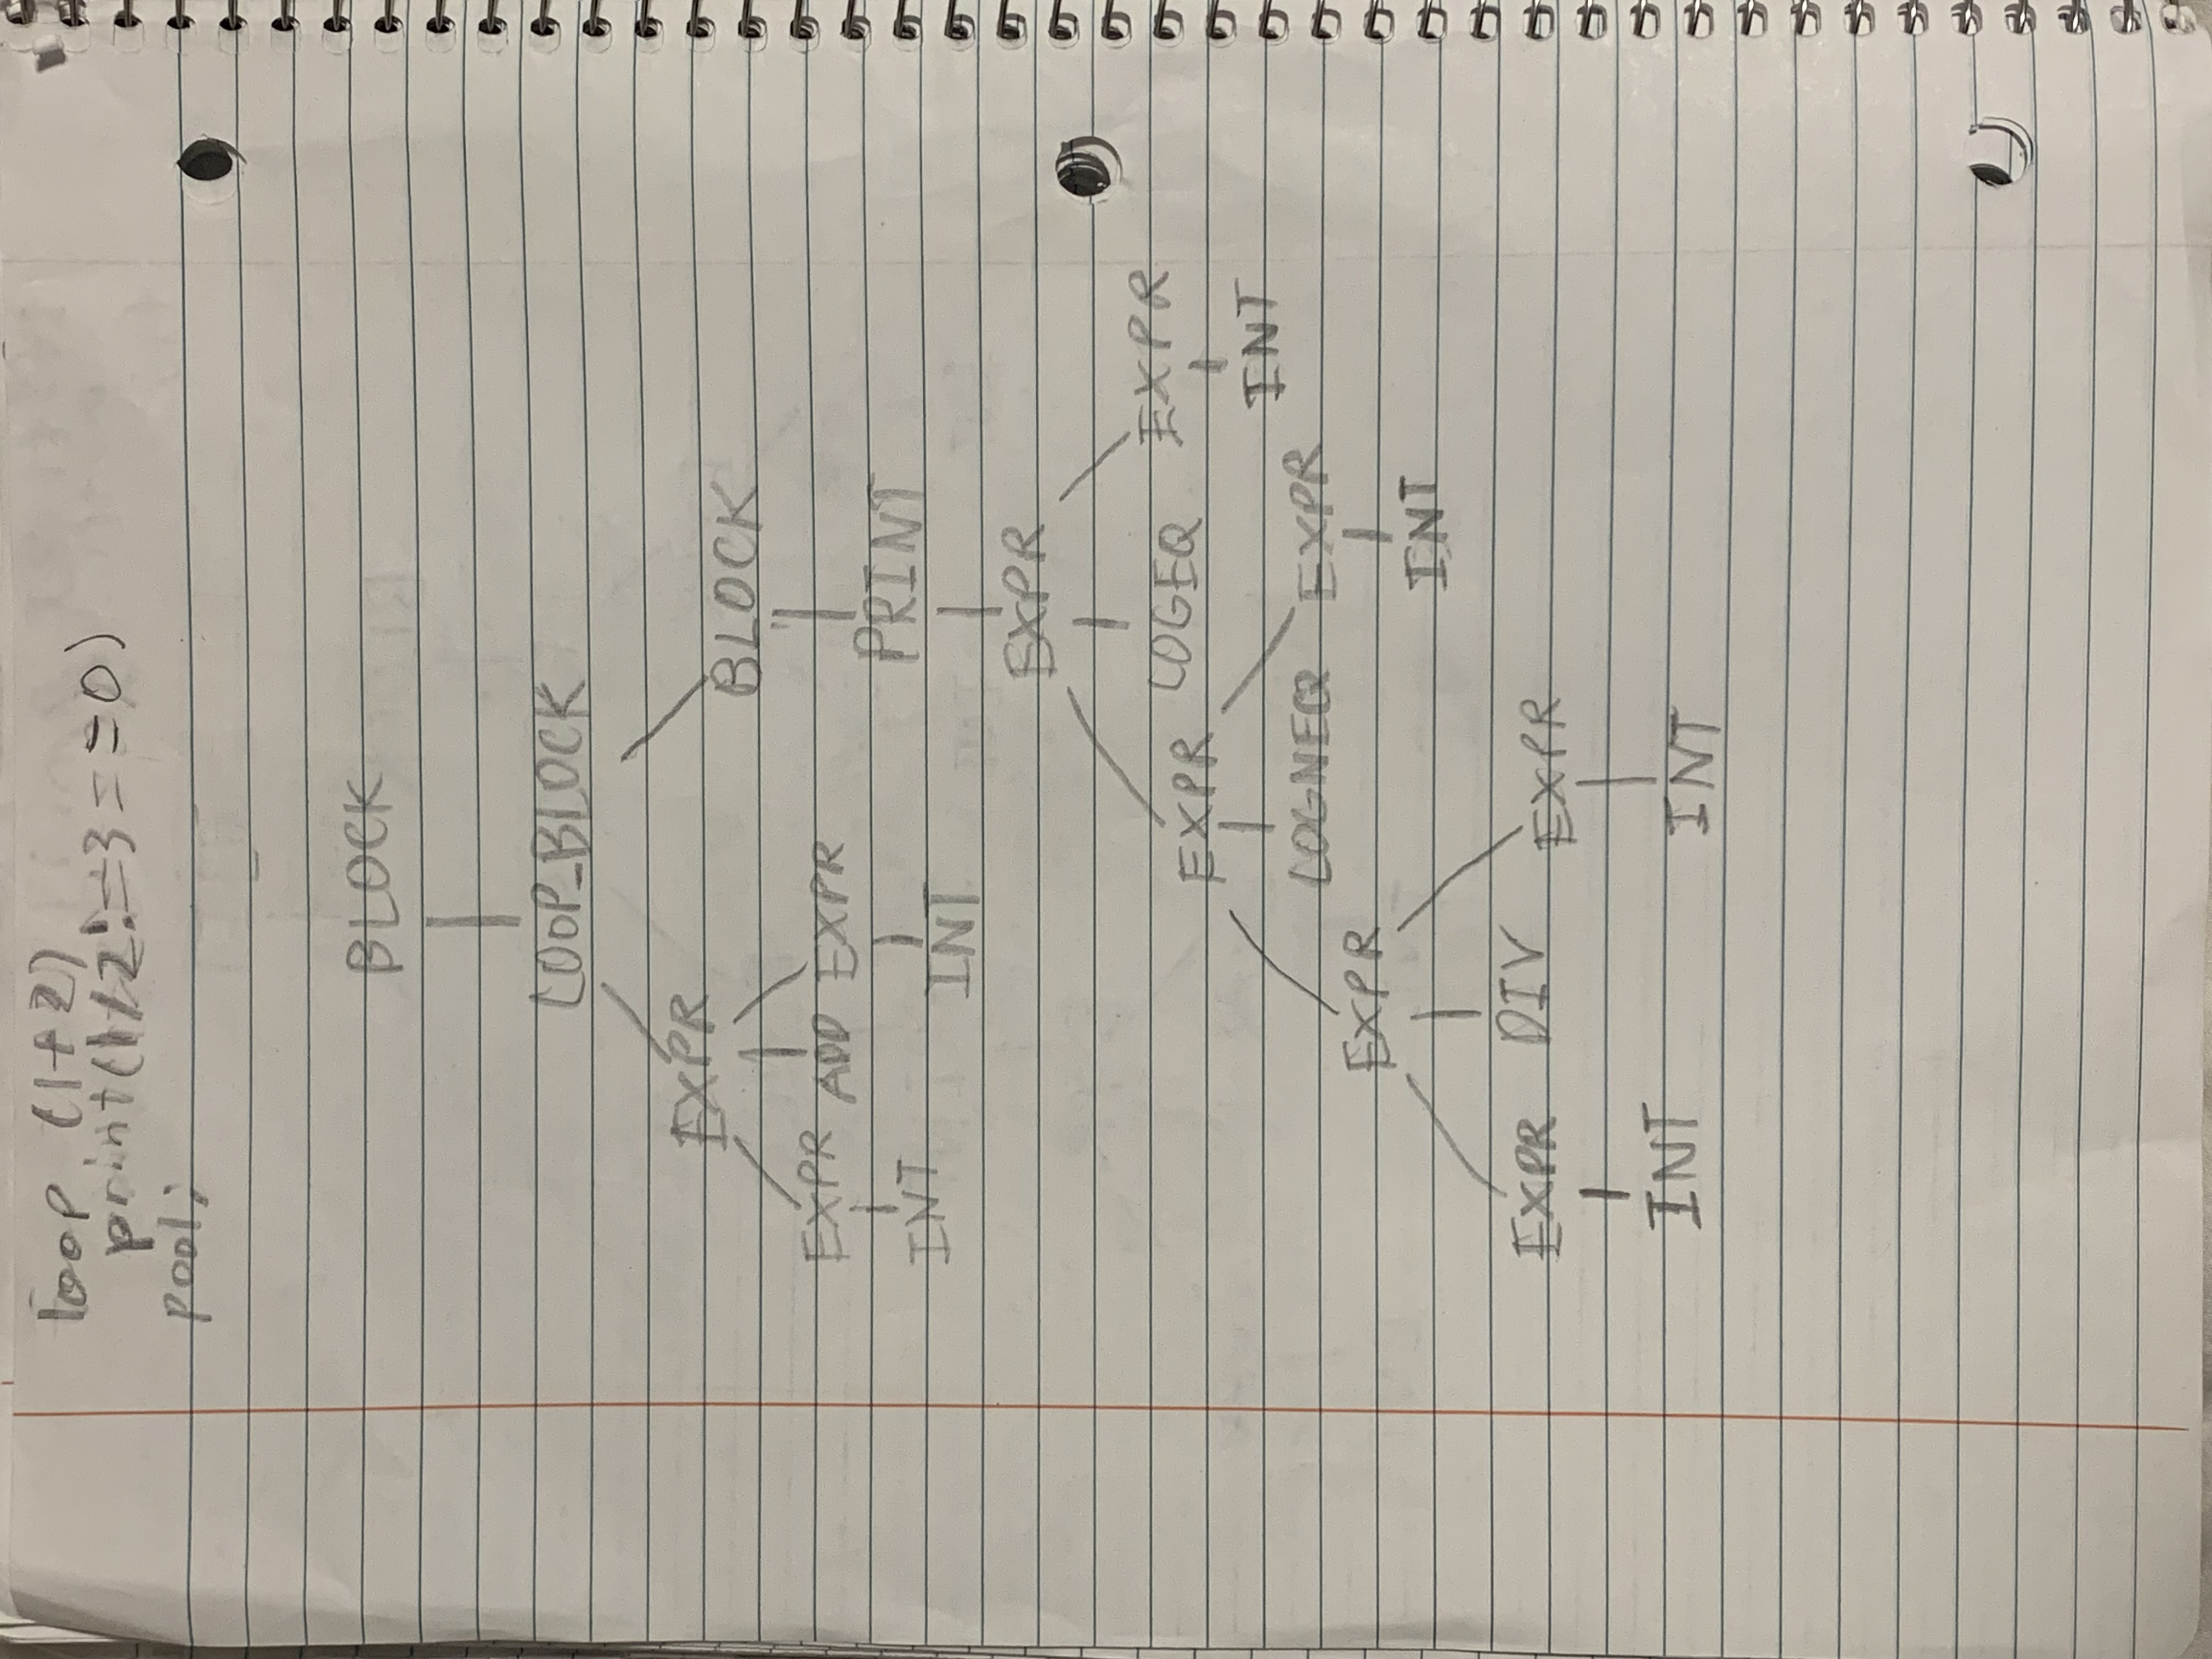 loop (1+2)
print(1/2!=3==0)
pool;
BLOCK
LOOP_BLOCK
EXPR
BLOCK
EXPR ADD EXPR
PRINT
INT
INT
EXPR
EXPR LOGEQ EXPR
INT
LOGNEQ EXPR
EXPR
INT
EXPR DIV EXPR
INT INT